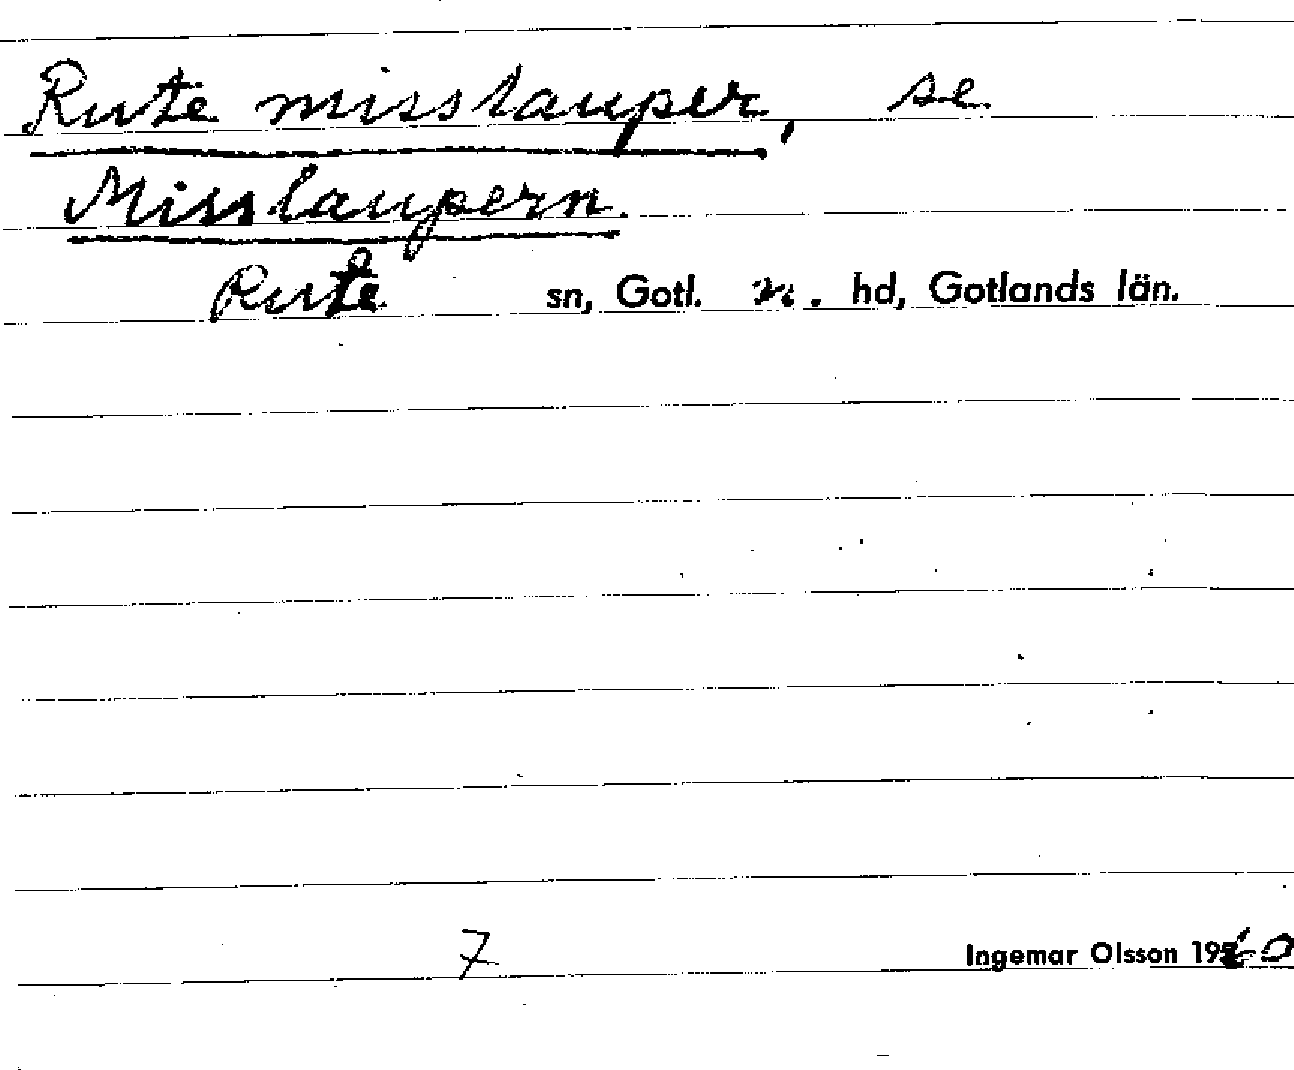 Rute misslauper, se
Misslaupern.
Rute sn, Gotl. n. hd, Gotlands län.
7 Ingemar Olsson 1960